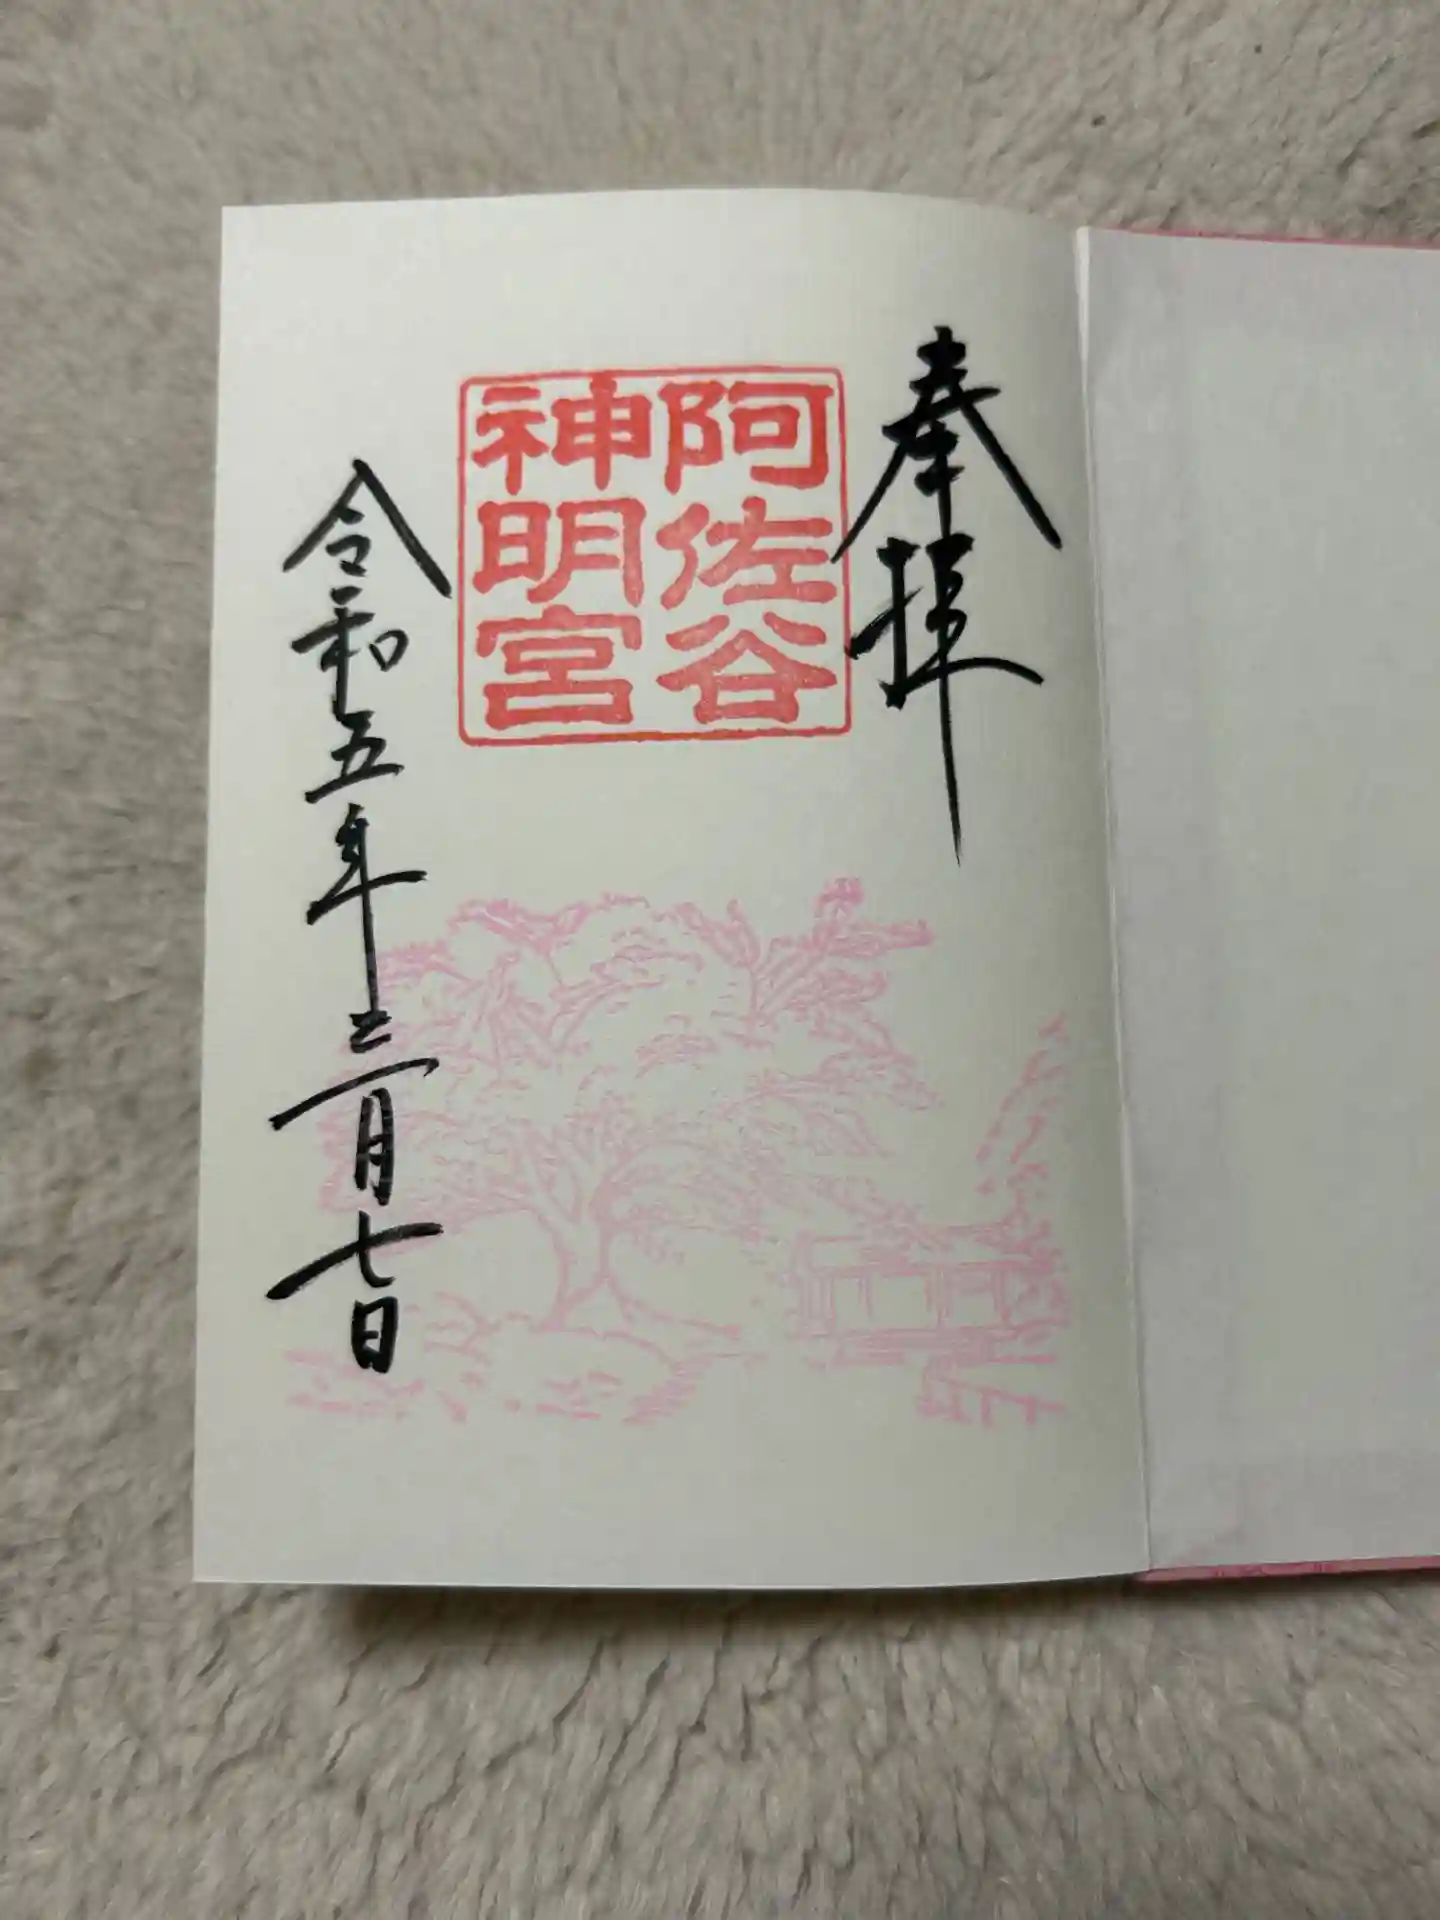 奉拝
阿佐谷
神明宮
令和五年三月七日